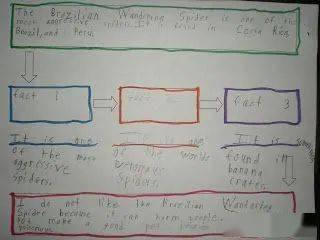 The Brazilian Wandering Spider is one of the
most aggressive spiders. It is found in Costa Rica,
Brazil, and Peru.
fact 1
fact 2
fact 3
It is one
of the most
aggressive
Spiders.
It is one
of the worlds
Spiders.
It is
found in
banana
crates.
I do not like the Brazilian Wandering
Spider because it can harm people.
make a good pet
poisonous